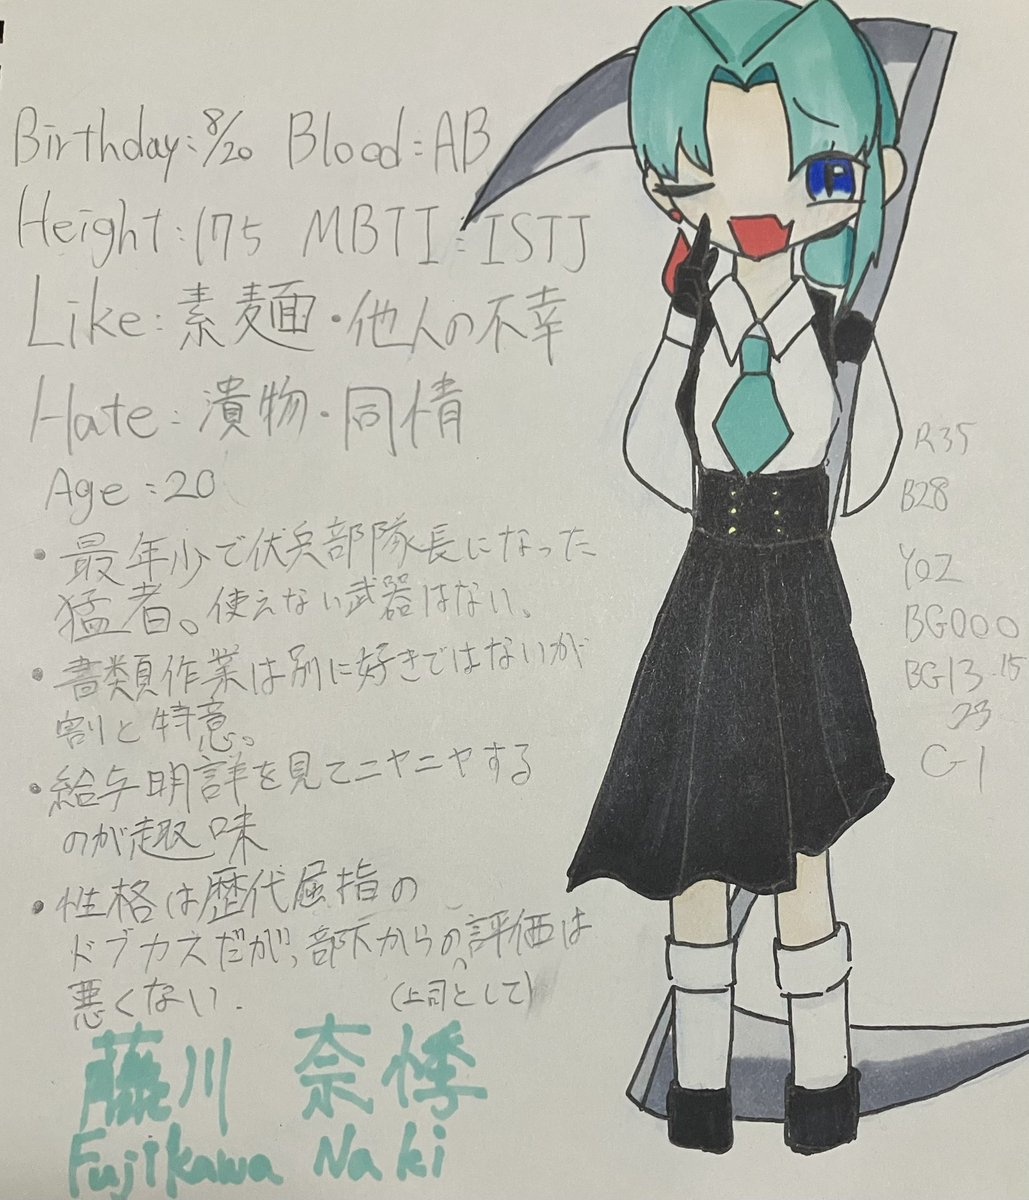 Birthday:8/20 Blood:AB
Height:175 MBTI:ISTJ
Like:素麺・他人の不幸
Hate:漬物・同情
Age:20
・最年少で伏兵部隊長になった
猛者。使えない武器はない。
・書類作業は別に好きではないが
割と特意。
・給与明詳を見てニヤニヤする
のが趣味
・性格は歴代屈指の
ドブカスだが、部下からの評価は
悪くない.
(上司として)
藤川 奈悸
Fujikawa Naki
R35
B28
Y02
BG000
BG13-15
23
C1